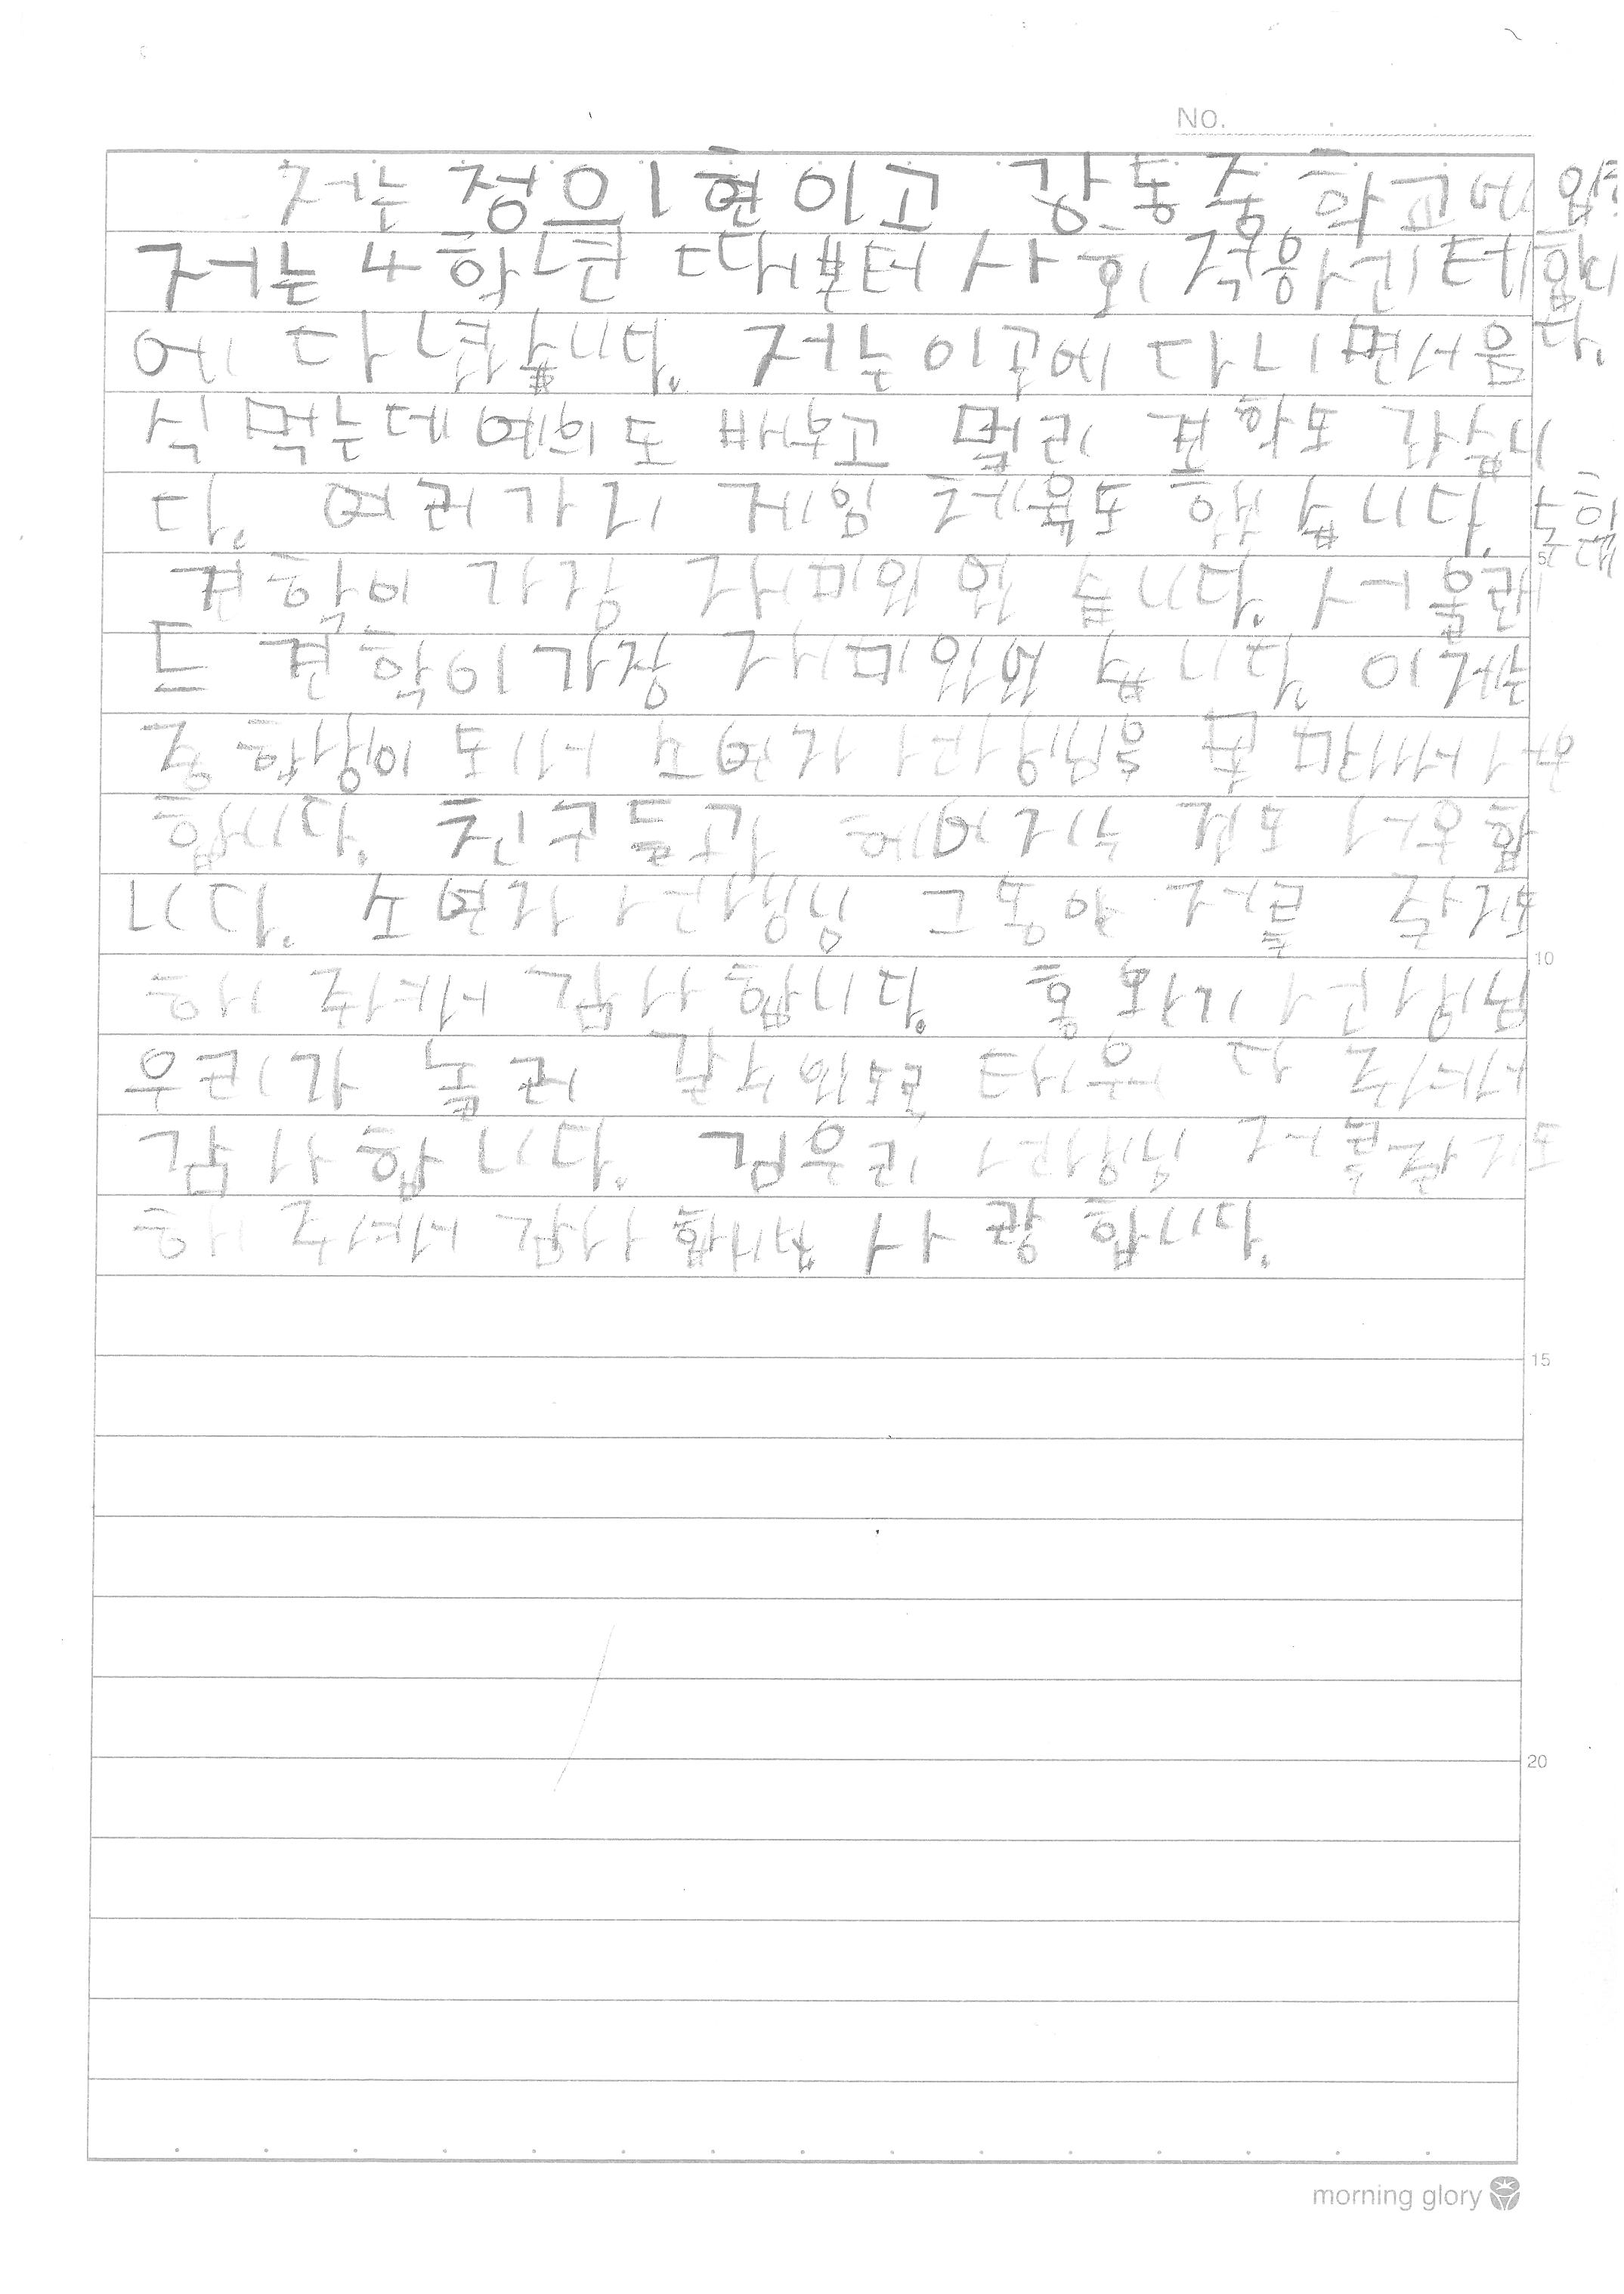 No.
저는 정의현이고 강동중학교에 입
저는 4학년 때부터 사회적응하기 테
합니
다.
에 다녔습니다. 저는 이곳에 다니면서 음
식 먹는데 예의도 배우고 멀리 견학도 갔습니
다. 여러가지 게임 체육도 했습니다.
5
견학이 가장 재미있었습니다. 서울랜
드 견학이 가장 재미있었습니다. 이제는
중학생이 되서 소연지 선생님을
합니다. 친구들과 헤어지는 것도
니다. 소연지 선생님 그동안 저를
10
해 주셔서 감사합니다. 선생님
우리가 놀러 갈 수 있도록 태우고 주셔서
감사합니다. 김유리 선생님 저를
해 주셔서 감사합니다. 사랑합니다.
15
20
morning glory